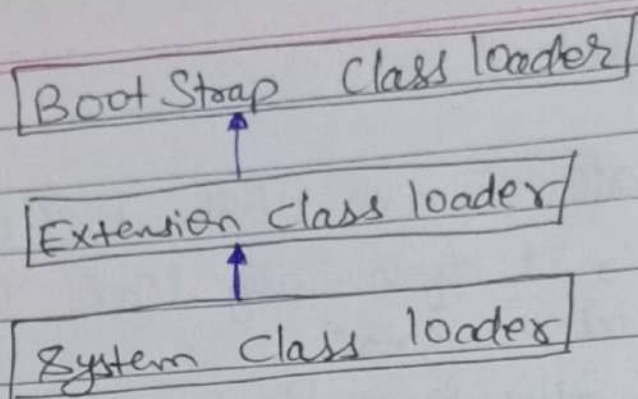 BootStrap Class loader
Extension Class loader
System Class loader